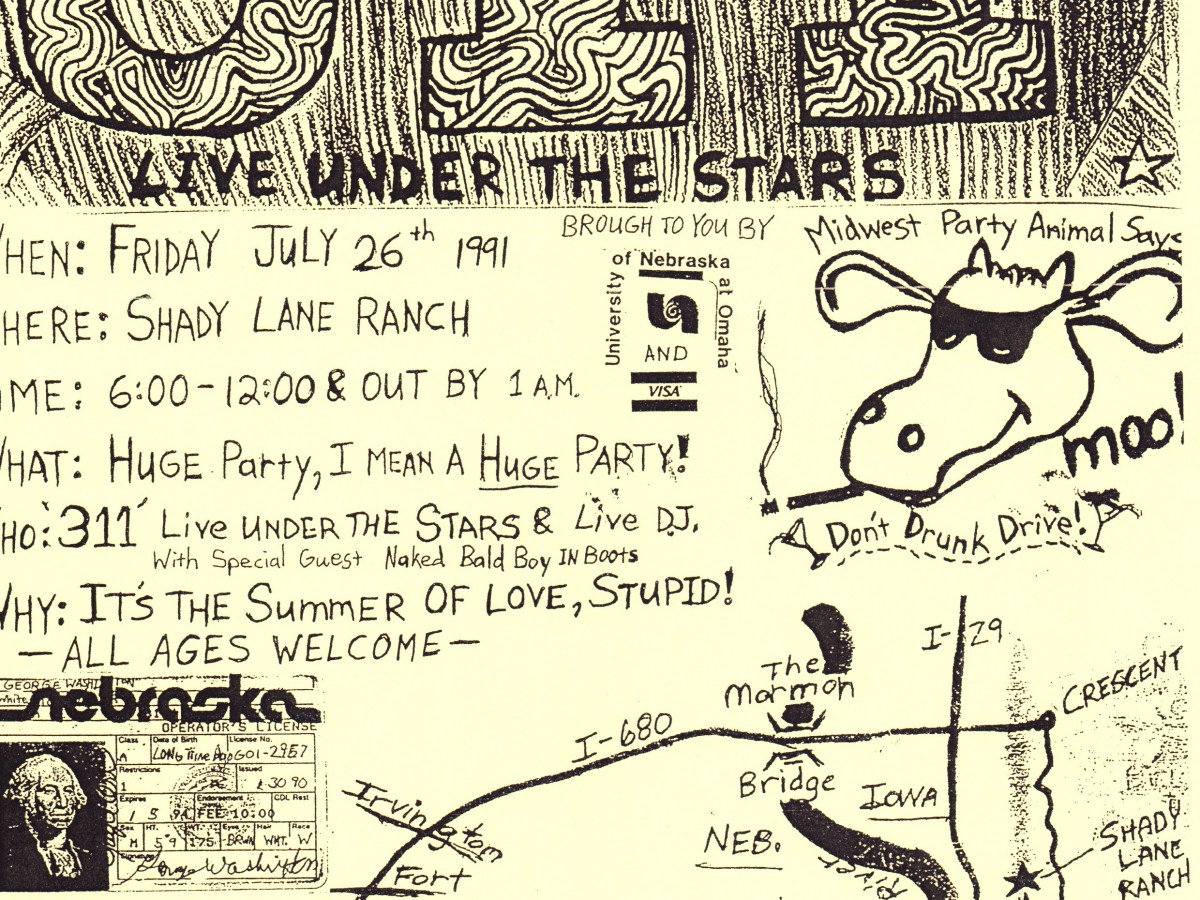 311
LIVE UNDER THE STARS
WHEN: FRIDAY JULY 26th 1991
WHERE: SHADY LANE RANCH
TIME: 6:00-12:00 & OUT BY 1 A.M.
WHAT: HUGE Party, I MEAN A HUGE PARTY!
WHO: '311' Live UNDER THE STARS & Live D.J.
With Special Guest Naked Bald Boy IN Boots
WHY: IT'S THE Summer OF LOVE, STUPID!
—ALL AGES WELCOME—
BROUGH TO YOU BY
University of Nebraska at Omaha
AND
VISA
Midwest Party Animal Says
moo!
Don't Drunk Drive!
GEORGE WASHINGTON
nebraska
OPERATOR'S LICENSE
Class Date of Birth License No.
A LONG Time Ago G01-2957
Restrictions Issued
1 1 30 90
Expires Endorsement CDL Rest
1 5 94 FEE 10.00
Sex HT. WT. Eyes Hair Race
M 5'9 175 BRWN WHT. W
Signature
George Washington
I-29
The Mormon
Bridge
CRESCENT
I-680
IOWA
NEB.
Irvington
Fort
RIVER
SHADY
LANE
RANCH